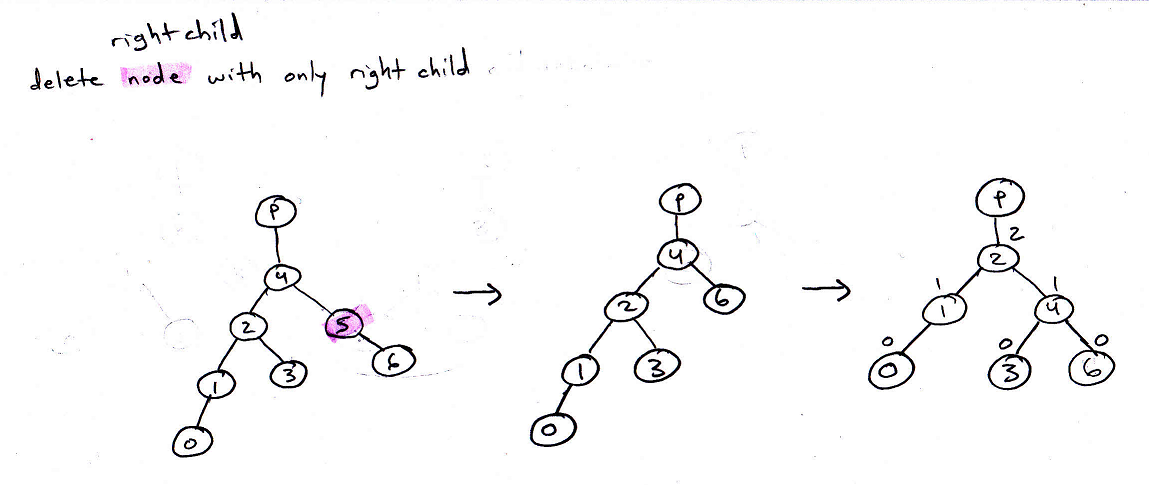 right child
delete node with only right child
P
4
2
5
1
3
6
0
P
4
2
6
1
3
0
P
2
2
1
1
1
4
0
0
0
0
3
6